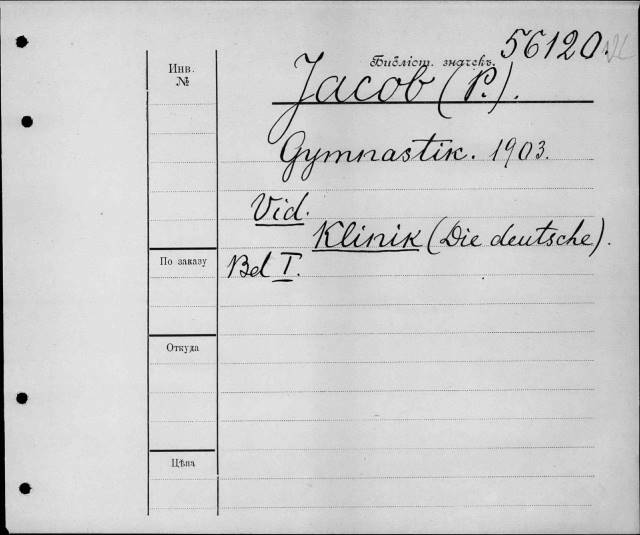 56120.
Инв. №
Библіот. значекъ.
Jacob (P.).
Gymnastik. 1903.
Vid.
Klinik (Die deutsche).
По заказу
Bd I.
Откуда
Цѣна